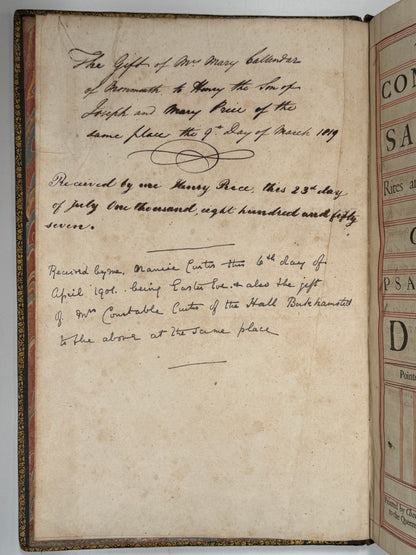 The Gift of Mrs Mary Callendar
of Monmouth to Henry the Son of
Joseph and Mary Price of the
same place the 9th Day of March 1819
Received by me Henry Price, this 23rd day
of July One thousand, eight hundred and fifty
seven.
Received by me, Maurice Curtis this 6th day of
April 1901. being Easter Eve. & also the gift
of Mrs Constable Curtis of the Hall Berkhamsted
to the above at the same place
CON
SA
Rites a
PSA
D
Pointe
Printed by Cha
to the Queen